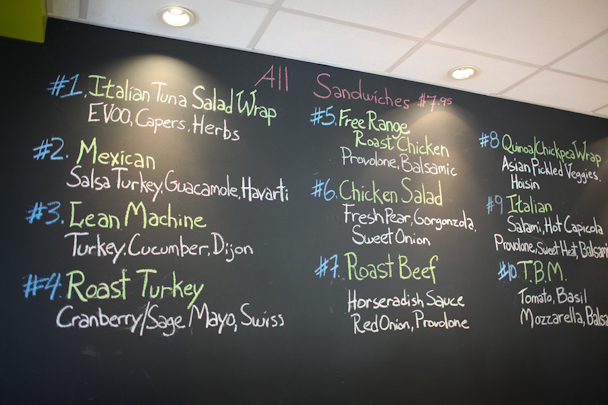 All Sandwiches $7.95
#1. Italian Tuna Salad Wrap
EVOO, Capers, Herbs
#2. Mexican
Salsa Turkey, Guacamole, Havarti
#3. Lean Machine
Turkey, Cucumber, Dijon
#4. Roast Turkey
Cranberry/Sage Mayo, Swiss
#5. Free Range
Roast Chicken
Provolone, Balsamic
#6. Chicken Salad
Fresh Pear, Gorgonzola,
Sweet Onion
#7. Roast Beef
Horseradish Sauce
Red Onion, Provolone
#8 Quinoa/Chickpea Wrap
Asian Pickled Veggies,
Hoisin
#9 Italian
Salami, Hot Capicola
Provolone, Sweet Heat, Balsami
#10. T.B.M.
Tomato, Basil
Mozzarella, Balsa